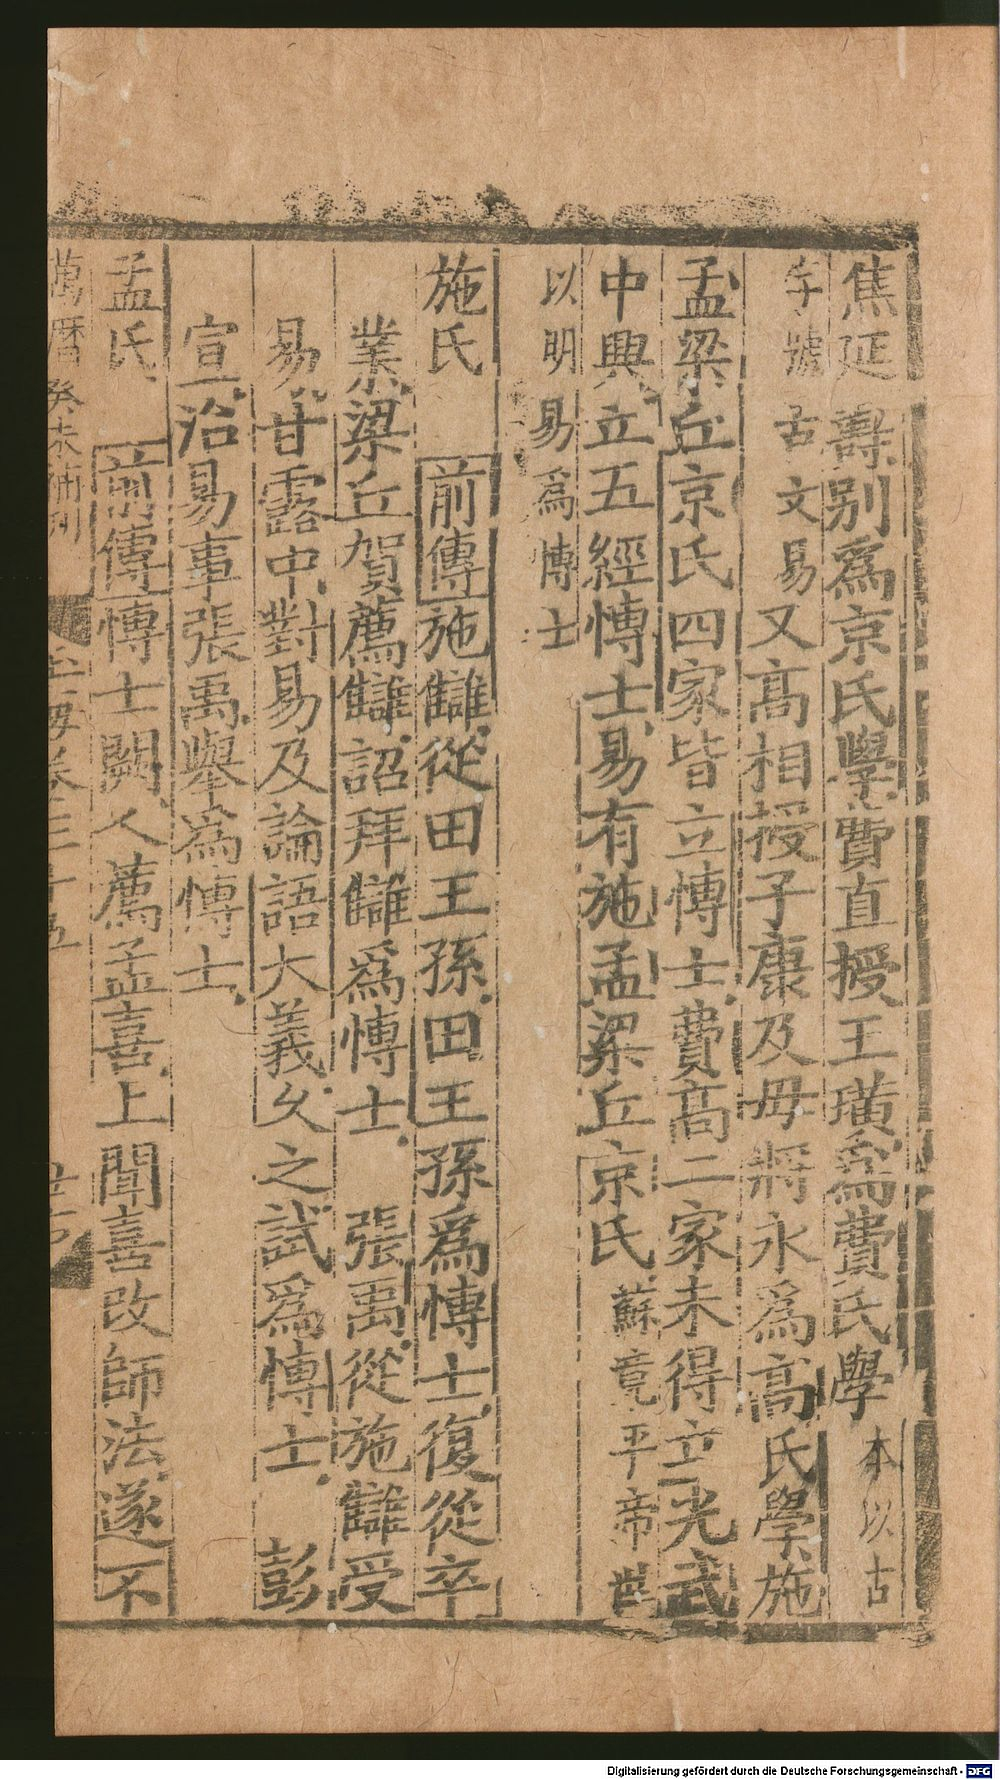 焦延壽別爲京氏學費直授王璜爲費氏學本以古
字號古文易又高相授子康及毋將永爲高氏學施
孟梁丘京氏四家皆立博士費高二家未得立光武
中興立五經博士易有施孟梁丘京氏蘇竟平帝世
以明易爲博士
施氏 前傳施讎從田王孫田王孫爲博士復從卒
業梁丘賀薦讎詔拜讎爲博士 張禹從施讎受
易甘露中對易及論語大義乂之試爲博士 彭
宣治易事張禹舉爲博士
孟氏 前傳博士闕人薦孟喜上聞喜改師法遂不
萬曆癸未補刊 玉海卷三十五
Digitalisierung gefördert durch die Deutsche Forschungsgemeinschaft - DFG